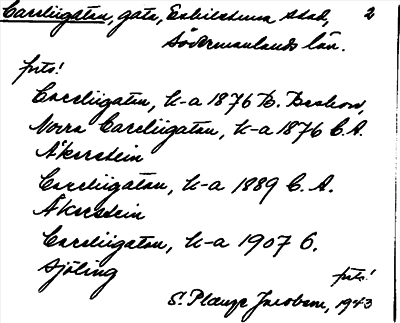 Careliigatan, gata, Eskilstuna stad, 2
Södermanlands län.
forts!
Careliigatan, K-a 1876 B. Beskow,
Norra Careliigatan, K-a 1876 C.A.
Åkerstein
Careliigatan, K-a 1889 C. A.
Åkerstein
Careliigatan, K-a 1907 G.
Sjöling
forts!
S. Jacobson, 1943